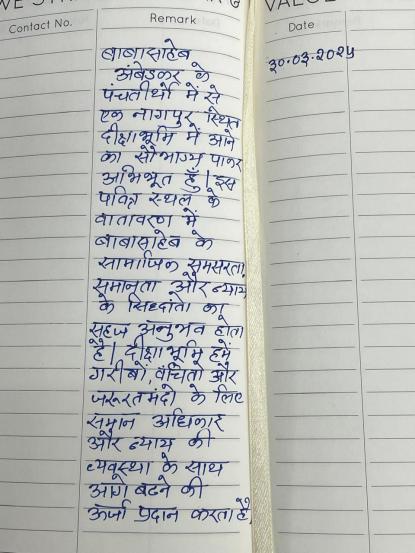 Contact No.
Remark
Date
30-03-2025
बाबासाहेब
अंबेडकर के
पंचतीर्थों में से
एक नागपुर स्थित
दीक्षाभूमि में आने
का सौभाग्य पाकर
अभिभूत हूँ। इस
पवित्र स्थल के
वातावरण में
बाबासाहेब के
सामाजिक समरसता,
समानता और न्याय
के सिद्धांतों का
सहज अनुभव होता
है। दीक्षाभूमि हमें
गरीबों, वंचितों और
जरूरतमंदों के लिए
समान अधिकार
और न्याय की
व्यवस्था के साथ
आगे बढ़ने की
ऊर्जा प्रदान करता है,